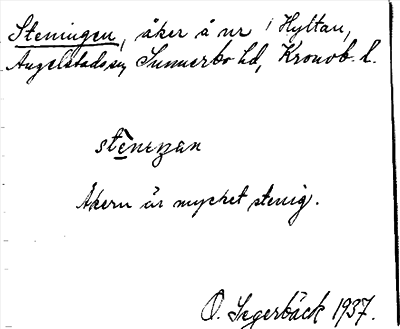 Steningen, åker å nr 1 Hyltan,
Angelstads sn, Sunnerbo hd, Kronob. l.
stenıŋən
Åkern är mycket stenig.
O. Segerbäck 1937.